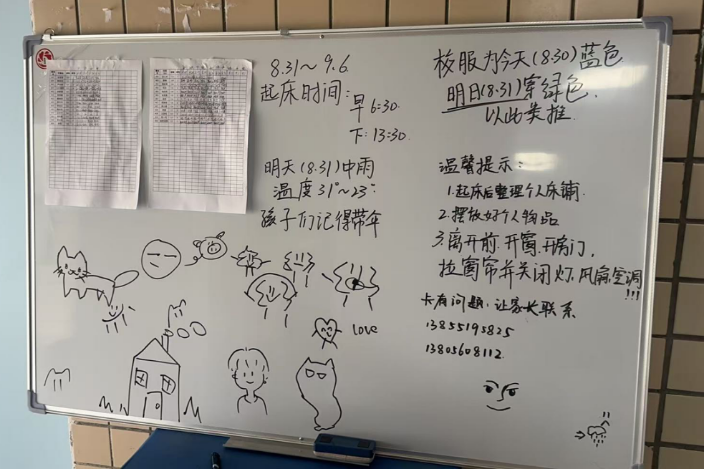 8.31～9.6
起床时间:
早 6:30
下: 13:30
明天(8.31)中雨
温度31°~23°
孩子们记得带伞
校服为今天(8.30)蓝色
明日(8.31)穿绿色.
以此类推
温馨提示:
1.起床后整理个人床铺
2.摆放好个人物品
3.离开前.开窗.开房门,
拉窗帘并关闭灯.风扇.空调
!!!
卡有问题.让家长联系
13855195825
13805608112
love